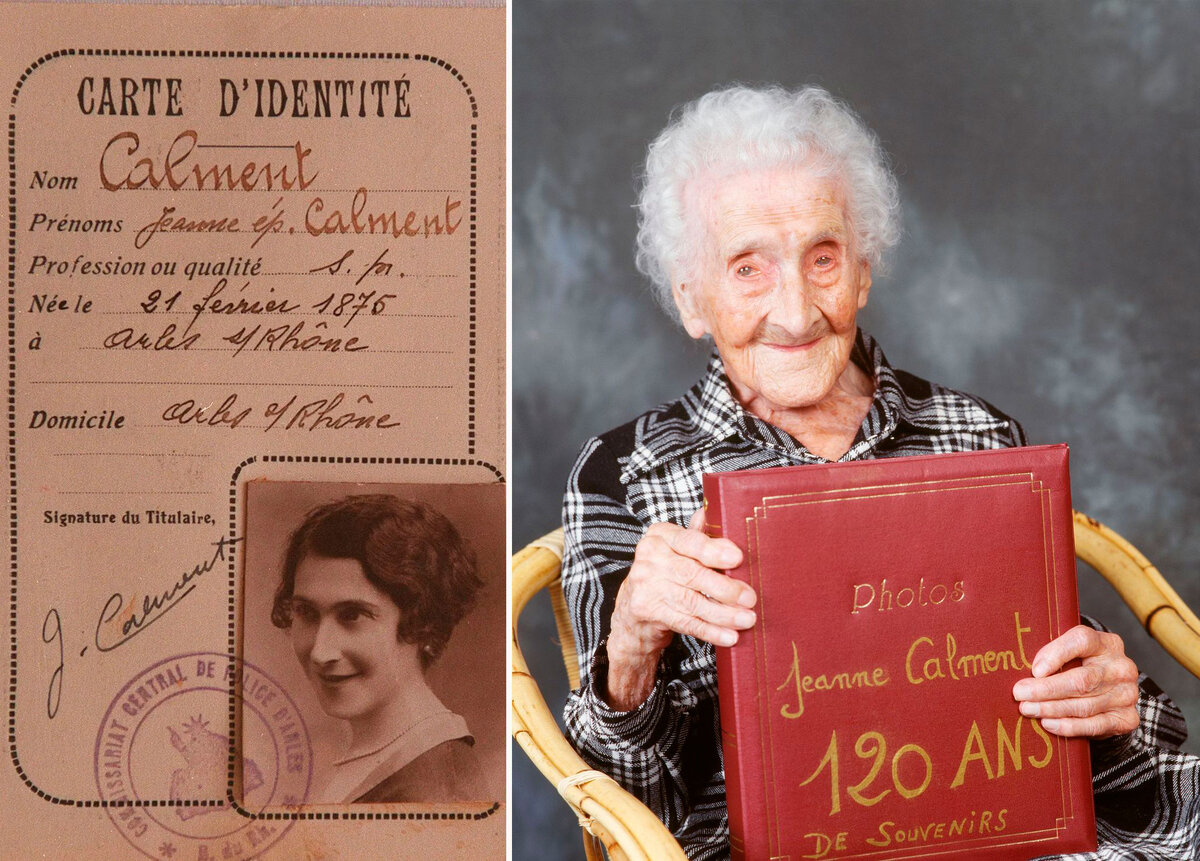 CARTE D'IDENTITÉ
Nom Calment
Prénoms Jeanne ép. Calment
Profession ou qualité s. pr.
Née le 21 février 1875
à Arles s/Rhône
Domicile Arles s/Rhône
Signature du Titulaire,
J. Calment
COMMISSARIAT CENTRAL DE POLICE D'ARLES
B. du Rh.
Photos
Jeanne Calment
120 ANS
DE SOUVENIRS